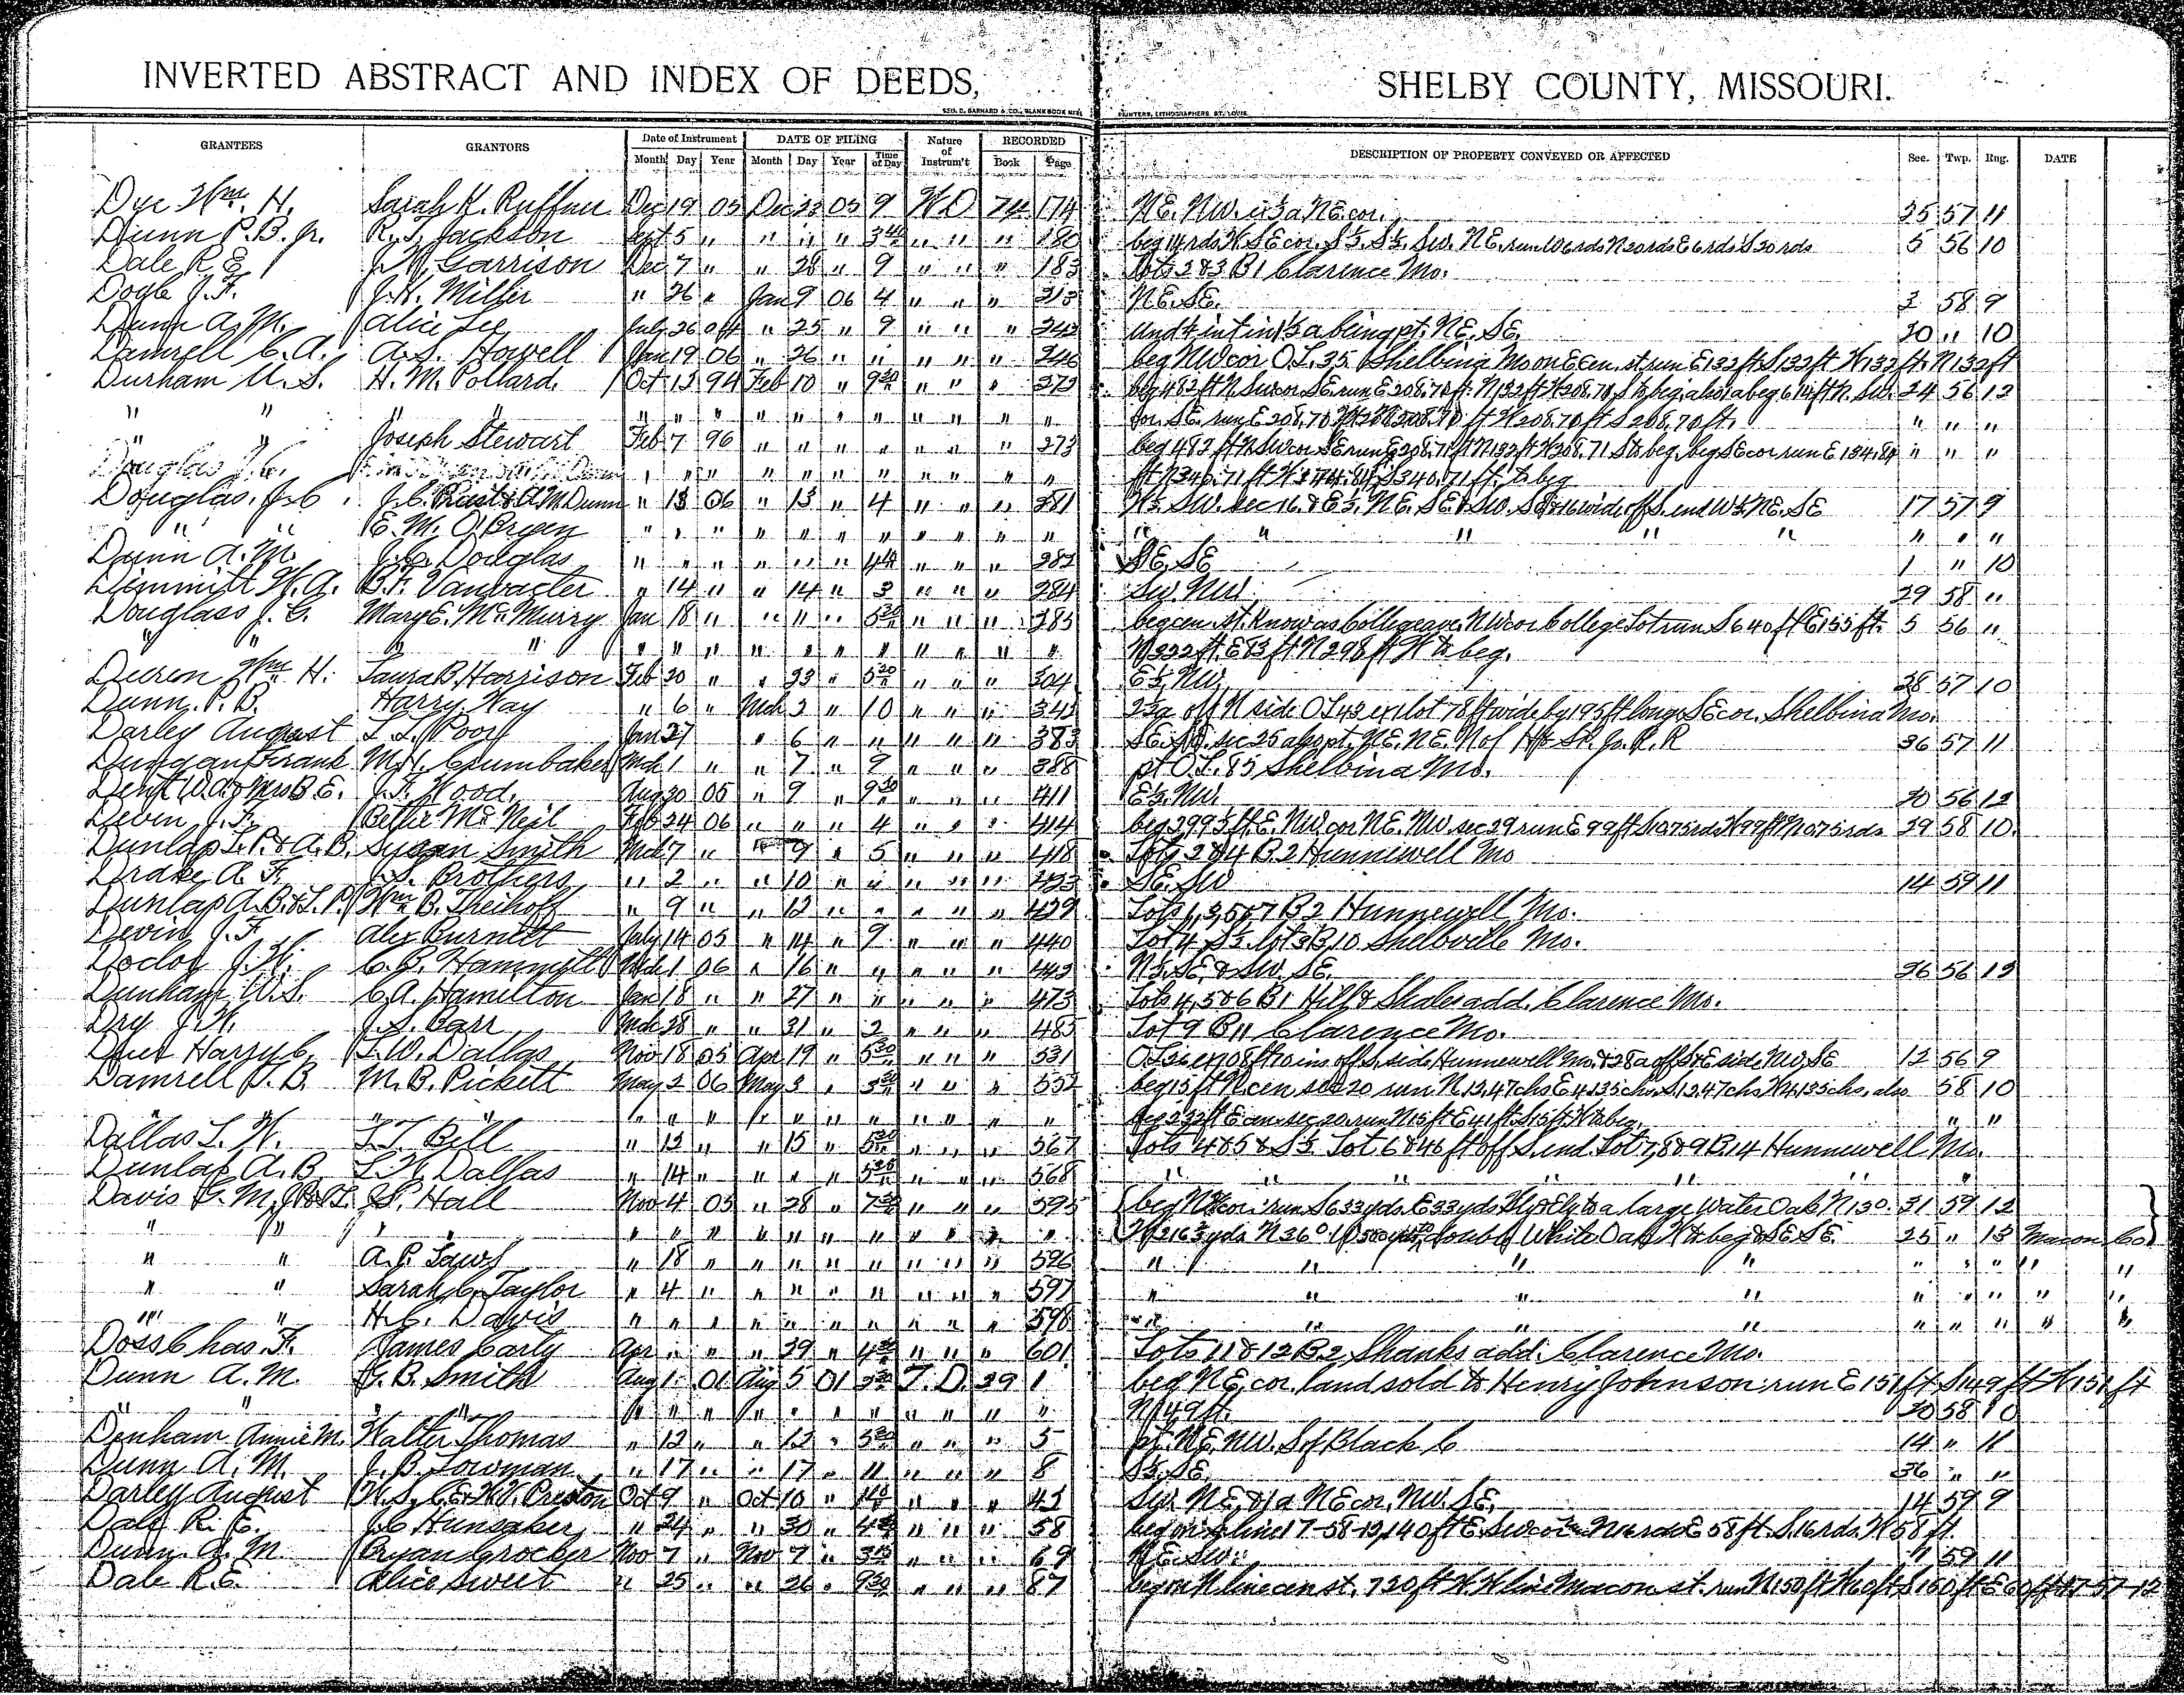 INVERTED ABSTRACT AND INDEX OF DEEDS, SHELBY COUNTY, MISSOURI.
GEO. D. BARNARD & CO., BLANK BOOK MFRS PRINTERS, LITHOGRAPHERS ST. LOUIS.
GRANTEES GRANTORS Date of Instrument DATE OF FILING Nature of Instrum't RECORDED DESCRIPTION OF PROPERTY CONVEYED OR AFFECTED Sec. Twp. Rng. DATE
Month Day Year Month Day Year Time of Day Book Page
Dye Wm. H. Sarah K. Ruffner Dec 19 05 Dec 23 05 9 W.D 74 174 NE. NW. ex 5 a NE cor. 35 57 11
Dunn P.B. Jr. R.T. Jackson Sept 5 " " " " 3 40 " " " 180 beg 14 rds W. SE cor. S½. S½. SW. NE. run W 6 rds N 20 rds E 6 rds S 20 rds 5 56 10
Dale R.E. J.W. Garrison Dec 7 " " 28 " 9 " " " 183 Lots 2 & 3 B 1 Clarence Mo.
Dogle J.F. J.H. Miller " 26 " Jan 9 06 4 " " " 213 NE. SE. 3 58 9
Dunn A.M. Alice Lee July 26 04 " 25 " 9 " " " 243 Und ¼ int in 15 a being pt. NE. SE. 30 " 10
Damrell C.A. A.S. Howell Jan 19 06 " 26 " " " " " 246 beg NW cor O.L. 35 Shelbina Mo on E Cen. st. run E 132 ft S 132 ft W 132 ft. N 132 ft
Durham U.S. H.M. Pollard. Oct 13 94 Feb 10 " 9 30 " " " 273 beg 482 ft N. SW cor. SE. run E 208.70 ft. N 132 ft W 208.70 S to beg. also 1 a beg 614 ft N. SW. 24 56 12
" " " " " " " " " " " " " " " cor. SE. run E 208.70 ft N 208.70 ft W 208.70 ft S 208.70 ft. " " "
" " Joseph Stewart Feb 7 96 " " " " " " " 273 beg 482 ft N SW cor SE run E 208.71 ft N 132 ft W 208.71 S to beg. beg SE cor run E 134.84 " " "
" " " " " " " " " " ft N 340.71 ft W 134.84 S 340.71 ft. to beg
Douglas. J.C. J.C. & A M Dunn " 13 06 " 13 " 4 " " " 281 W½. SW. sec 16. & E½. NE. SE. & SW. SE & 16 wide off S. end W½ NE. SE 17 57 9
" " E.M. O'Bryen " " " " " " " " " " " " " " " " " " "
Dunn A.M. J.C. Douglas " " " " " " 4 40 " " " 282 SE. SE 1 " 10
Dimmitt W.A. B.F. Vanvacter " 14 " " 14 " 3 " " " 284 SW. NW. 29 58 "
Douglass J.C. Mary E. McMurry Jan 18 " " " " 5 30 " " " 285 beg cen. st. know as College ave. NW cor College Lot run S 640 ft E 155 ft. 5 56 "
" " " " " " " " " " " " " " " N 322 ft. E 83 ft N 298 ft W to beg.
Duren Wm H. Laura B. Harrison Feb 20 " " 23 " 5 20 " " " 304 E½. NW. 28 57 10
Dunn. P.B. Harry Way " 6 " Mch 2 " 10 " " " 342 23 a off N side OL 43 ex lot 78 ft wide by 195 ft long SE cor. Shelbina Mo.
Darley August L.L. Poor Jan 27 " 6 " " " " " 383 SE. SE. sec 25 also pt. NE. NE. N of H & St. Jo. R.R 36 57 11
Dungan Frank M.H. Crumbaker Mch 1 " " 7 " 9 " " " 388 pt O.L. 85 Shelbina Mo.
Dent W.A. & Mrs B.E. J.F. Wood. Aug 30 05 " 9 " 9 30 " " " 411 E½. NW. 30 56 12
Devin J.F. Bettie McNeil Feb 24 06 " " " 4 " " " 414 beg 399.5 ft E. NW cor NE. NW. sec 29 run E 99 ft S 10.75 rds W 99 ft N 10.75 rds 29 58 10.
Dunlap L.P. & A.B. Susan Smith Mch 7 " 9 " 5 " " " 418 Lots 2 & 4 B. 2 Hunnewell Mo
Drake A.F. J.S. Brothers " 2 " " 10 " " " " " 423 SE. SW 14 59 11
Dunlap A.B. & L.P. Wm B. Theihoff " 9 " " 12 " " " " " 429 Lots 1, 3, 5 & 7 B 2 Hunnewell Mo.
Devin J.F. Alex Burnett July 14 05 " 14 " 9 " " " 440 Lot 4 S½ Lot 3 B. 10 Shelbville Mo.
Doctor J.W. C.B. Hammett Mch 1 06 " 16 " " " " " 443 N½. SE. & SW. SE. 36 56 12
Dunham W.S. C.A. Hamilton Jan 18 " " 27 " " " " " 473 Lots 4, 5 & 6 B 1 Hill & Shales add. Clarence Mo.
Dry J.W. J.S. Carr Mch 28 " " 31 " 2 " " " 485 Lot 9 B 11 Clarence Mo.
Harry C. L.W. Dallas Nov 18 05 Apr 19 " 5 30 " " " 531 OL 26 ex 108 ft 10 ins off S. side, Hunnewell Mo. & 28 a off S & E side NW. SE 12 56 9
Damrell J.B. M.B. Pickett May 2 06 May 3 " " " " 552 beg 15 ft N cen sec 20 run N 12.47 chs E 4.135 chs. S 12.47 chs W 4.135 chs. also 58 10
" " " " " " " " " " " " " beg 232 ft E cen. sec. 20. run N 15 ft E 41 ft. S 15 ft. W to beg. " "
Dallas L.W. L.T. Bell " 12 " " 15 " 5 30 " " " 567 Lots 4 & 5 & S½ Lot 6 & 46 ft off S. end Lot 7, 8 & 9 B. 14 Hunnewell Mo.
Dunlap. A.B. L.W. Dallas " 14 " " " " 5 35 " " " 568 " " " " " " "
Davis J.S. Hall Nov 4 05 " 28 " 7 30 " " " 595 beg NW cor. run S 633 yds. E 33 yds Nly & Ely to a large Water Oak N 13°. 31 59 12
" " " " " " " " " " " " " " W 216⅔ yds N 36° double White Oak W to beg & SE SE. 25 " 13 Macon Co
" " A.P. Laws " 18 " " " " " " " " 596 " " " " " " " " "
" " Sarah C. Taylor " 4 " " " " " " " " 597 " " " " " " " " "
" " H.C. Davis " " " " " " " " " " 598 " " " " " " " " "
Doss Chas. F. James Carly Apr " " " 29 " 4 30 " " " 601 Lots 11 & 12 B 2 Shanks add. Clarence Mo.
Dunn A.M. J.B. Smith Aug 1 01 Aug 5 01 T.D. 29 1 beg NE cor. land sold to Henry Johnson run E 151 ft S 149 ft W 151 ft
" " " " " " " " " " " " " " " N 149 ft. 30 58 10
Denham Annie M. Walter Thomas " 12 " " 12 " 5 30 " " " 5 pt. NE. NW. S of Black C 14 " 11
Dunn A.M. J.B. Lowman " 17 " " 17 " 11 " " " 8 S½. SE. 36 " "
Darley August W.S., C.E. & W.V. Preston Oct 9 " Oct 10 " " " " 43 SW. NE. & 1 a NE cor. NW. SE. 14 59 9
Dale R.E. J.C. Hunsaker " 24 " " 30 " 4 30 " " " 58 beg on S line 17-58-12, 140 ft E. SW cor N 16 rds E 58 ft. S. 16 rds. W 58 ft.
Dunn. A.M. Bryan Crocker Nov 7 " Nov 7 " " " " 69 NE. SW. 59 11
Dale R.E. Alice Sweet " 25 " " 26 " 9 30 " " " 87 beg on N line cen st. 720 ft W. W line Macon st. run N 150 ft W 60 ft S 150 ft E 60 ft 17-57-12